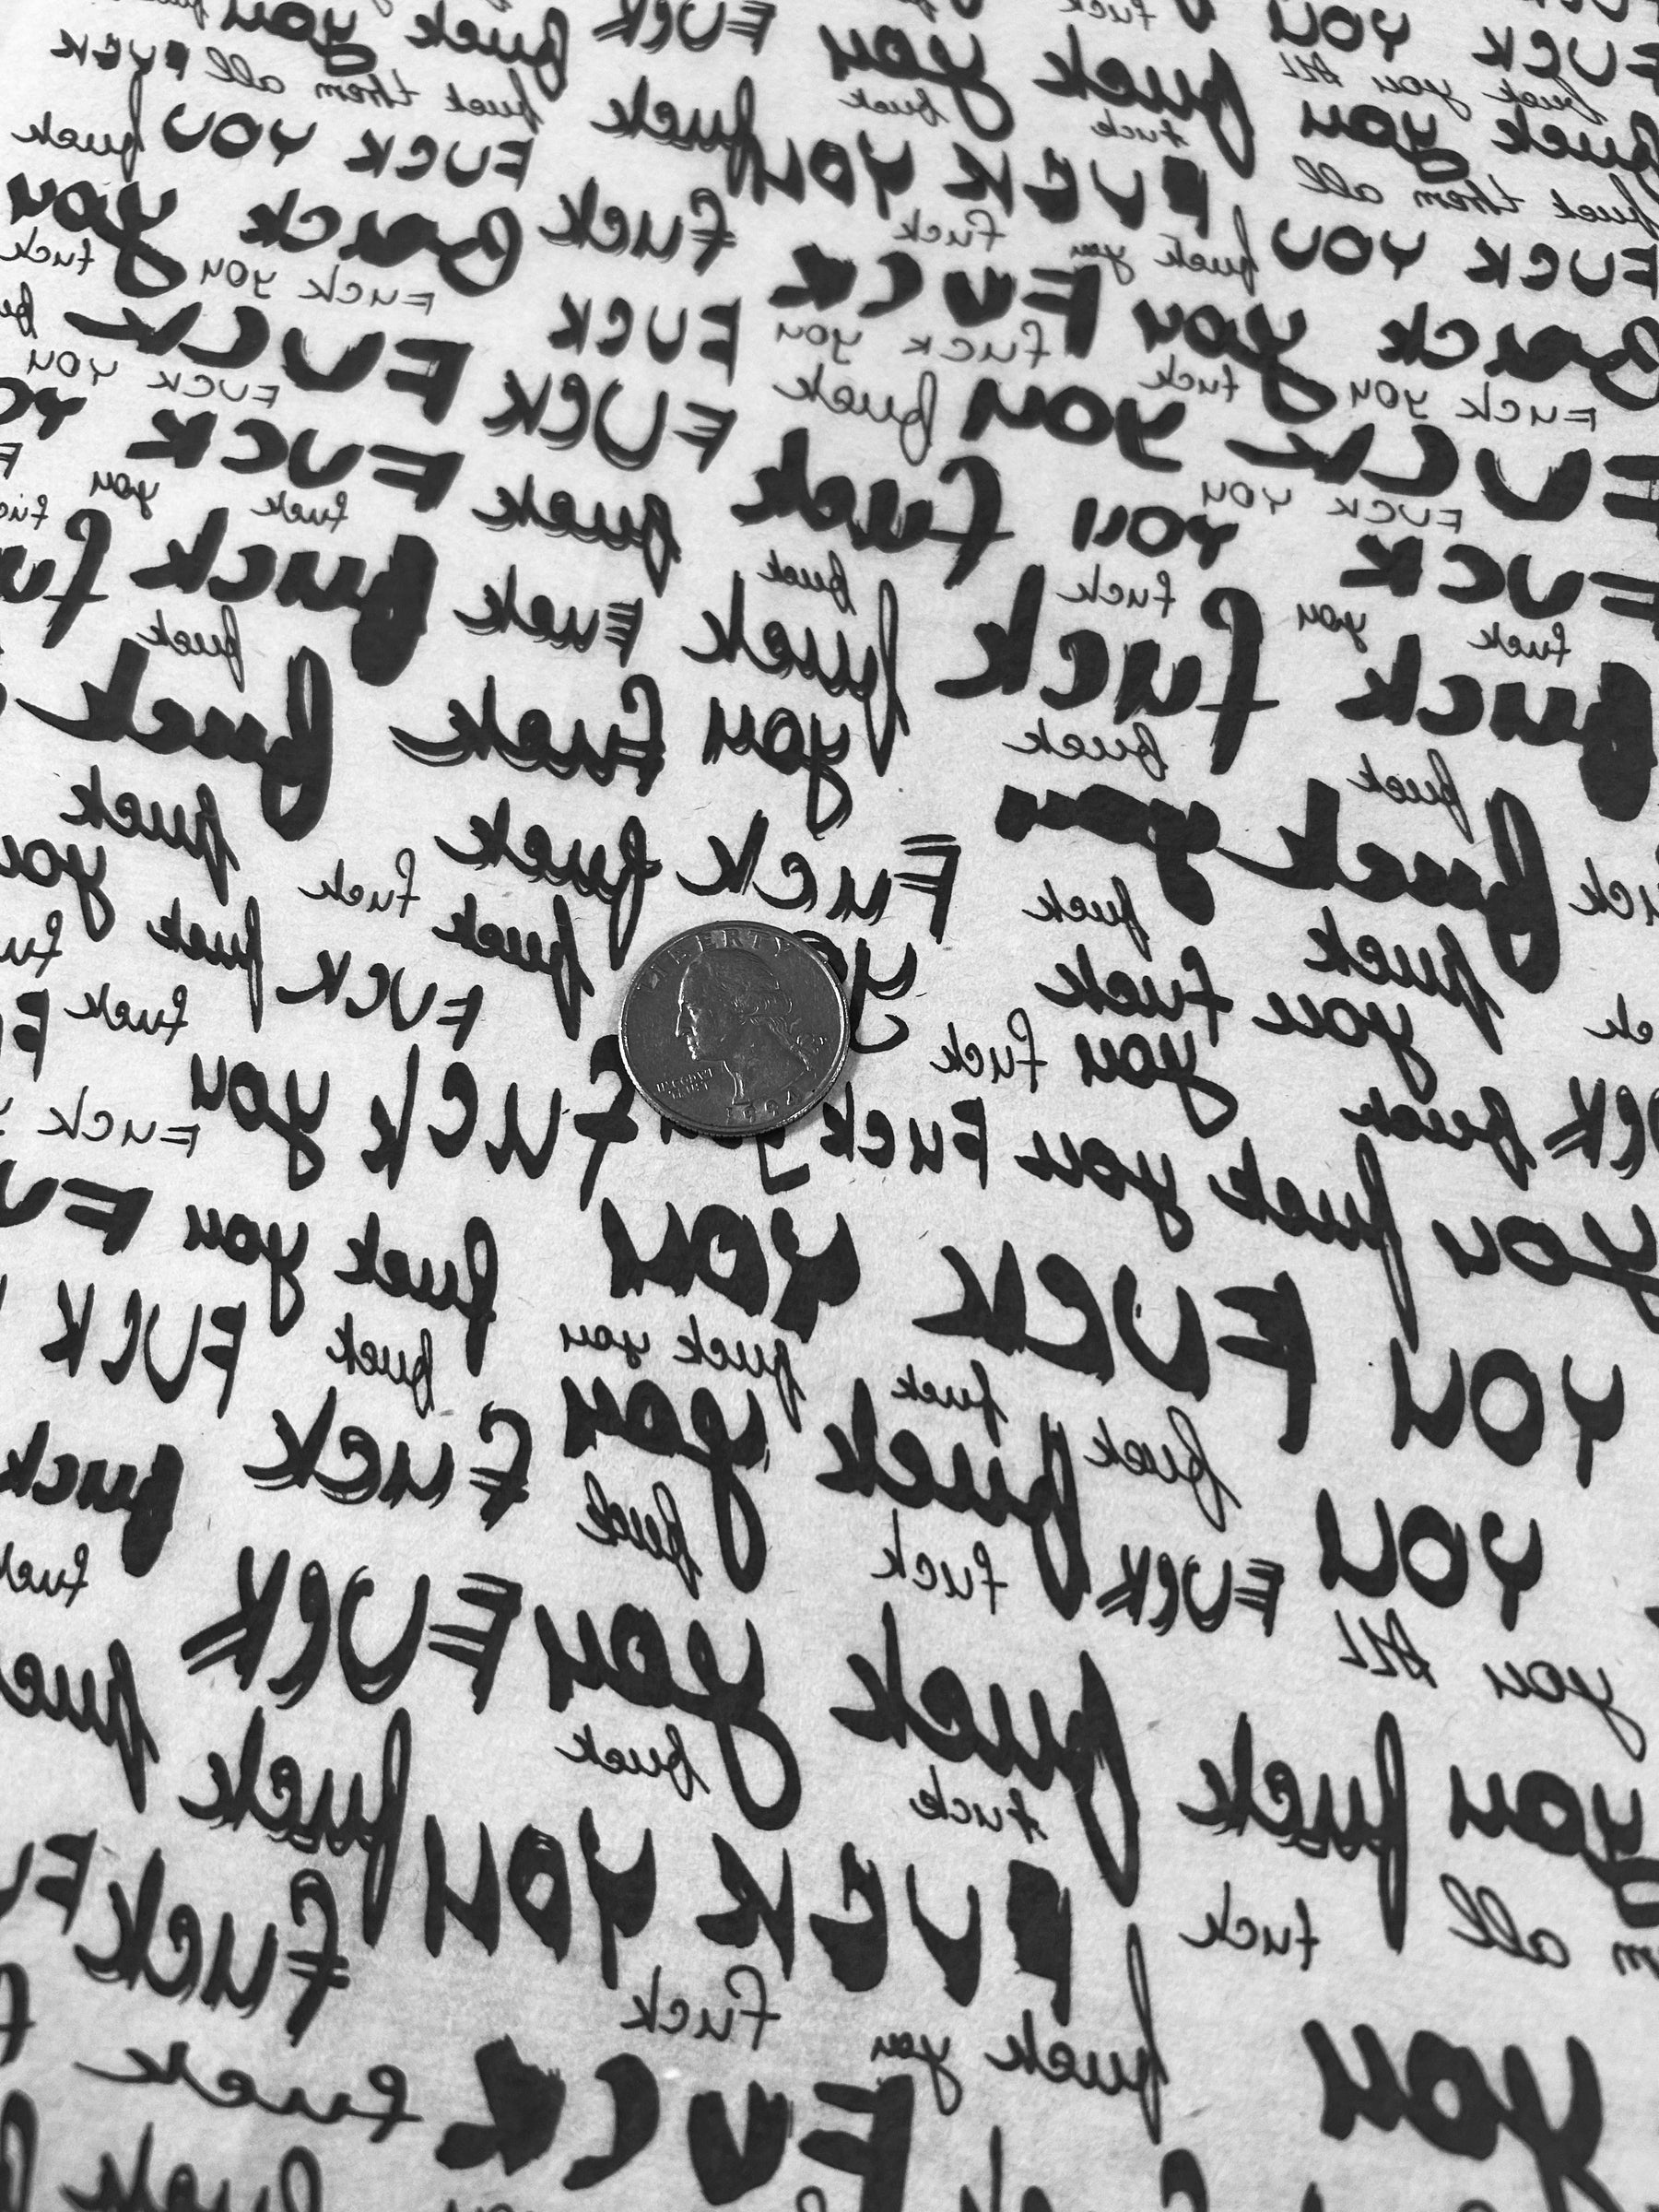 FUCK YOU fuck you FUCK fuck you
fuck you All
fuck you fuck fuck them all FUCK
fuck them all FUCK YOU fuck FUCK YOU fuck
FUCK YOU fuck you fuck FUCK fuck Fuck you
Fuck you FUCK you fuck you FUCK FUCK you fuck
FUCK you fuck you fuck FUCK FUCK
FUCK YOU you fuck fuck FUCK YOU
FUCK fuck fuck FUCK
fuck you fuck fuck Fuck fuck fuck you
fuck fuck fuck you fuck fuck
fuck fuck you Fuck fuck fuck
fuck fuck fuck
fuck you fuck fuck fuck you
you fuck FUCK fuck fuck
LIBERTY
IN GOD WE TRUST
1994
fuck fuck
you fuck you Fuck fuck you FUCK
YOU FUCK you fuck you
YOU fuck fuck fuck you fuck FUCK
FUCK fuck fuck you fuck fuck
you All fuck fuck you FUCK fuck
you fuck fuck fuck fuck
all fuck FUCK YOU fuck
fuck you fuck fuck
you FUCK fuck
fuck